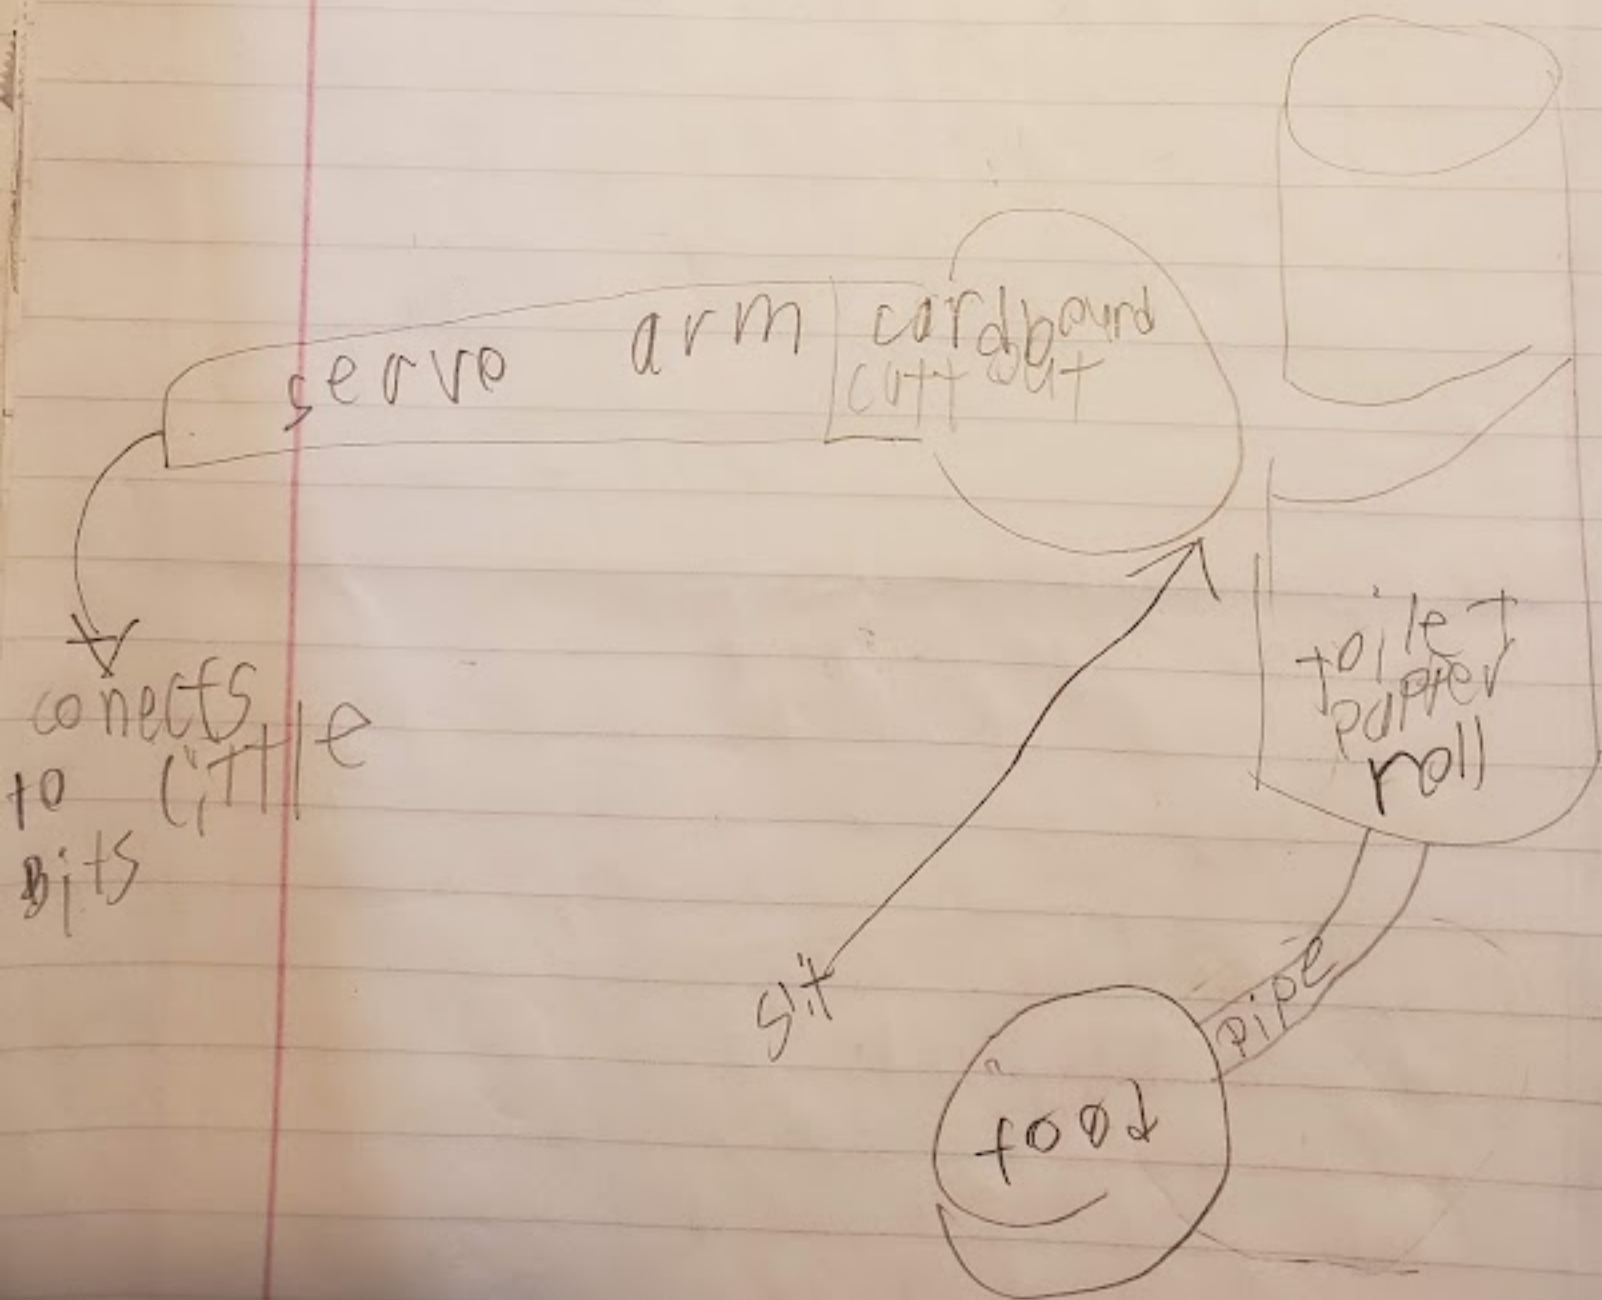 servo arm
cardbourd
cutt out
conects
to little
Bits
toilet
papper
roll
slit
pipe
food